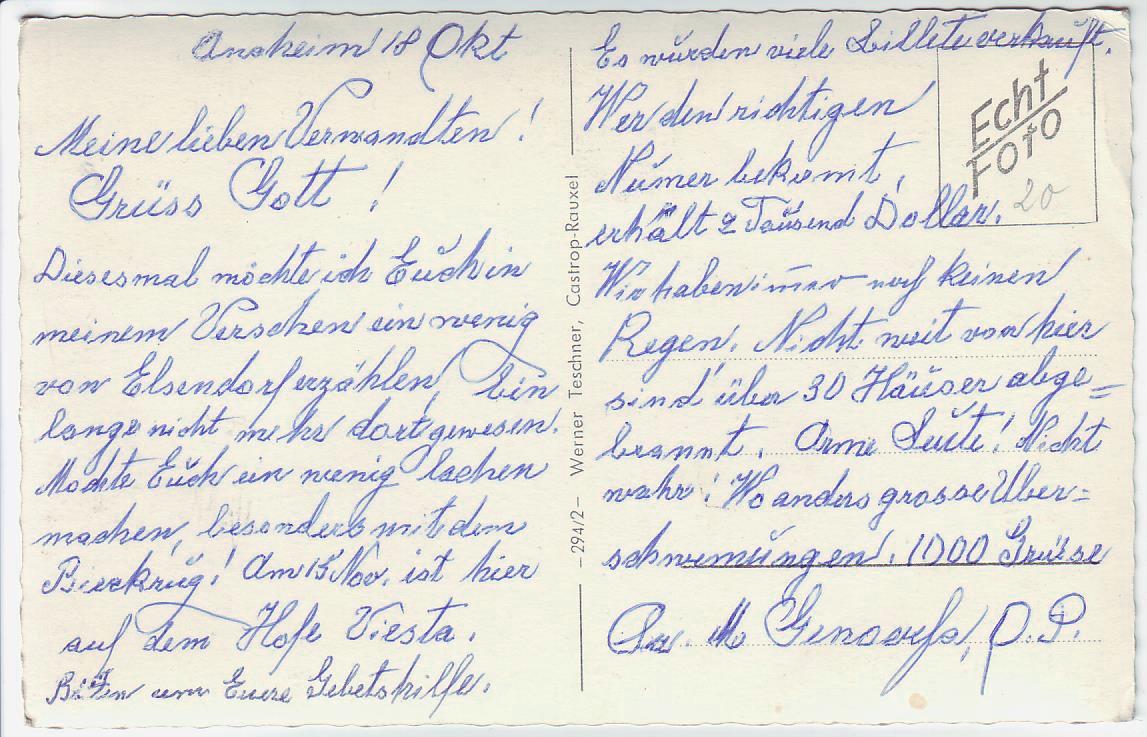 Anaheim 18 Okt
Meine lieben Verwandten!
Grüss Gott!
Diesesmal möchte ich Euch in
meinem Verschen ein wenig
von Elsendorf erzählen, bin
lange nicht mehr dort gewesen.
Möchte Euch ein wenig lachen
machen, besonders mit dem
Bierkrug! Am 15 Nov. ist hier
auf dem Hofe Viesta.
Bitten um Euere Gebetshilfe.
Es wurden viele Billete verkauft.
Wer den richtigen
Numer bekomt,
erhält 2 Tausend Dollar.
Wir haben immer noch keinen
Regen. Nicht weit von hier
sind über 30 Häuser abge=
brannt. Arme Leute! Nicht
wahr! Wo anders grosse Uber=
schwemungen. 1000 Grüsse
M. Genovefa, O.P.
Echt
Foto
20
– 294/2 – Werner Teschner, Castrop-Rauxel